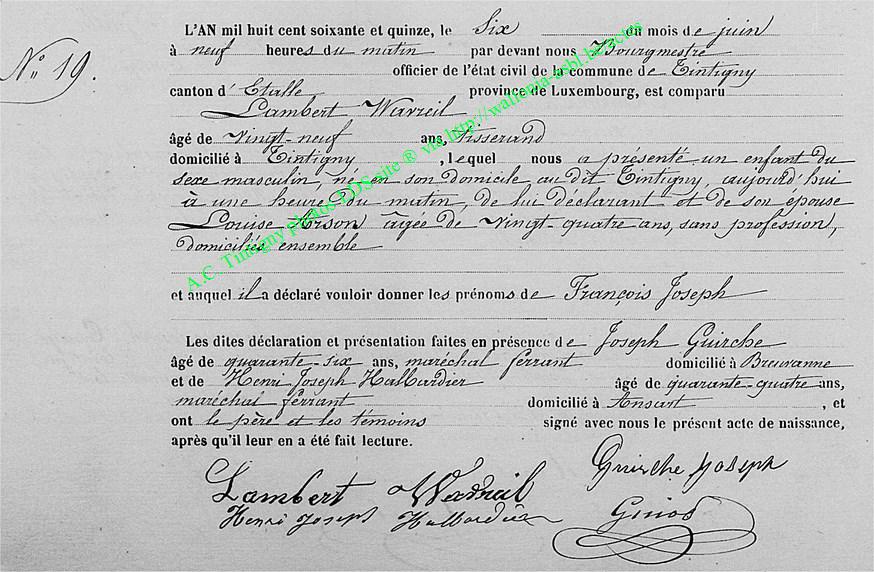 L'AN mil huit cent soixante et quinze, le Six du mois de juin
N° 19.
à neuf heures du matin par devant nous Bourgmestre
officier de l'état civil de la commune de Tintigny
canton d'Etalle province de Luxembourg, est comparu
Lambert Wavreil
âgé de vingt-neuf ans, tisserand
domicilié à Tintigny, lequel nous a présenté un enfant du
sexe masculin, né en son domicile au dit Tintigny, aujourd'hui
à une heure du matin, de lui déclarant et de son épouse
Louise Arson agée de vingt-quatre ans, sans profession,
domiciliés ensemble
et auquel il a déclaré vouloir donner les prénoms de François Joseph
Les dites déclaration et présentation faites en présence de Joseph Guirche
âgé de quarante-six ans, maréchal ferrant domicilié à Breuvanne
et de Henri Joseph Halbardier âgé de quarante-quatre ans,
maréchal ferrant domicilié à Ansart, et
ont le père et les témoins signé avec nous le présent acte de naissance,
après qu'il leur en a été fait lecture.
Guirche Joseph
Lambert Wavreil
Henri Joseph Halbardier
A.C. Tintigny photos LDS site ® via http://wallonia-asbl.be/actes